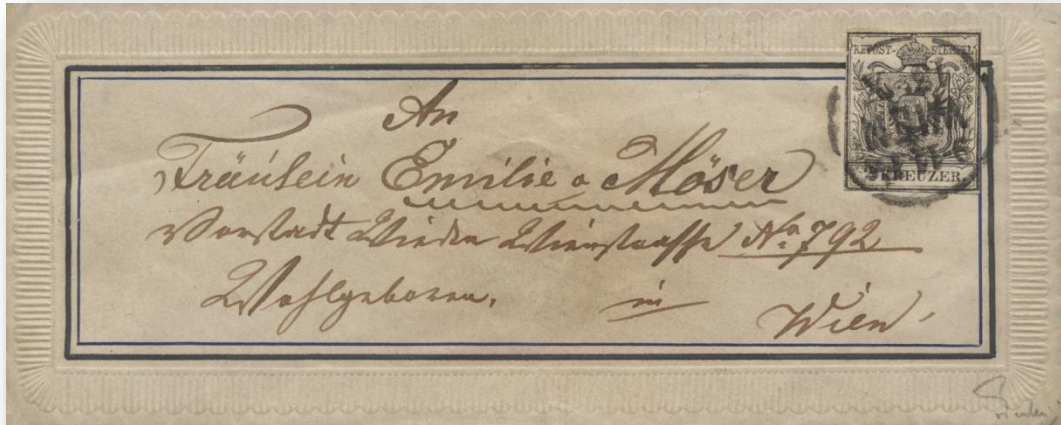 KK POST-STEMPEL
2 KREUZER
An
Fräulein Emilie v Möser
Vorstadt Wieden Wienstrasse No 792
Wohlgeboren. in
Wien.